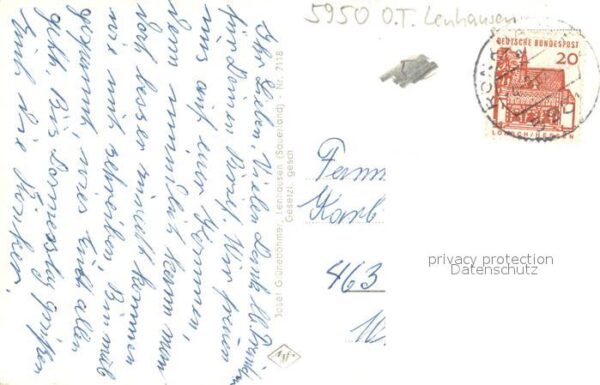 5950 O.T. Lenhausen
DEUTSCHE BUNDESPOST
20
LORSCH/HESSEN
Ihr Lieben! Vielen Dank
für Deinen Brief. Wir freuen
uns auf euer Kommen,
denn mündlich kann man
doch besser
wie mit schreiben. Bin mal
gespannt, was euch allen
geht. Bis Donnerstag grüßen
Euch die
Josef Grünebohmer, Lenhausen (Sauerland) · Nr. 7118
Gesetzl. gesch.
Agfa
Fam
Karl
463
privacy protection
Datenschutz